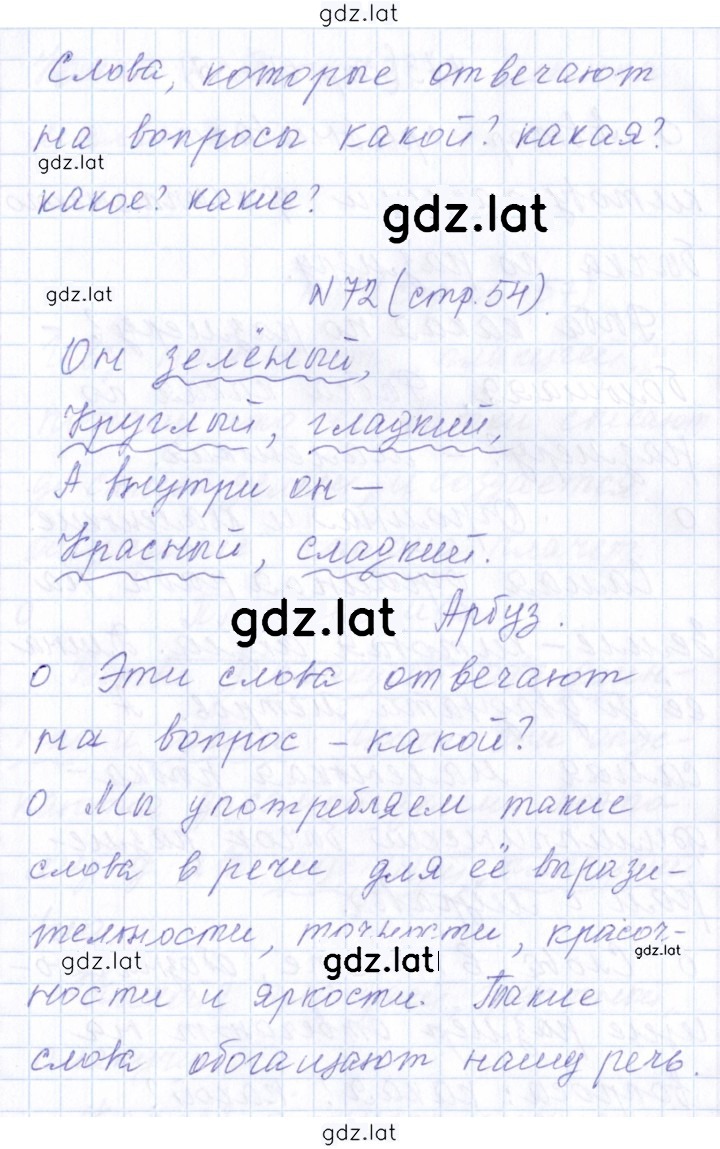 gdz.lat
Слова, которые отвечают
на вопросы какой? какая?
gdz.lat
какое? какие?
gdz.lat
gdz.lat
№72 (стр.54).
Он зелёный,
Круглый, гладкий,
А внутри он —
Красный, сладкий.
gdz.lat
Арбуз.
о Эти слова отвечают
на вопрос – какой?
о Мы употребляем такие
слова в речи для её вырази-
тельности, точности, красоч-
gdz.lat
gdz.lat
gdz.lat
ности и яркости. Такие
слова обогащают нашу речь.
gdz.lat